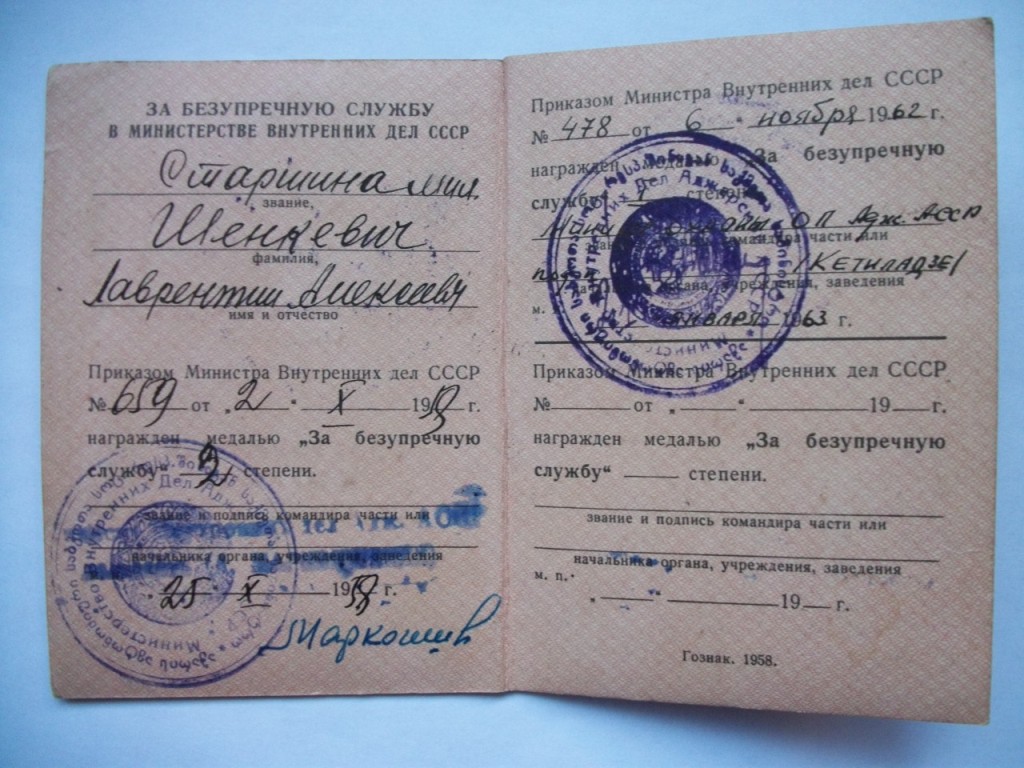 ЗА БЕЗУПРЕЧНУЮ СЛУЖБУ
В МИНИСТЕРСТВЕ ВНУТРЕННИХ ДЕЛ СССР
Старшина мил.
звание,
Шенкевич
фамилия,
Лаврентий Алексеевич
имя и отчество
Приказом Министра Внутренних дел СССР
№ 659 от „2“ X 19 г.
награжден медалью „За безупречную
службу“ 2 степени.
звание и подпись командира части или
начальника органа, учреждения, заведения
„25“ X 19 г.
Министерство Внутренних Дел
Приказом Министра Внутренних дел СССР
№ 478 от „6“ ноября 1962 г.
награжден медалью „За безупречную
службу“ I степени
ОП Адж. АССР
командира части или
/КЕТИЛАДЗЕ/
органа, учреждения, заведения
м.
января 1963 г.
Внутренних Дел
Приказом Министра Внутренних дел СССР
№ от „ “ 19 г.
награжден медалью „За безупречную
службу“ степени.
звание и подпись командира части или
начальника органа, учреждения, заведения
м. п.
„ “ 19 г.
Гознак. 1958.